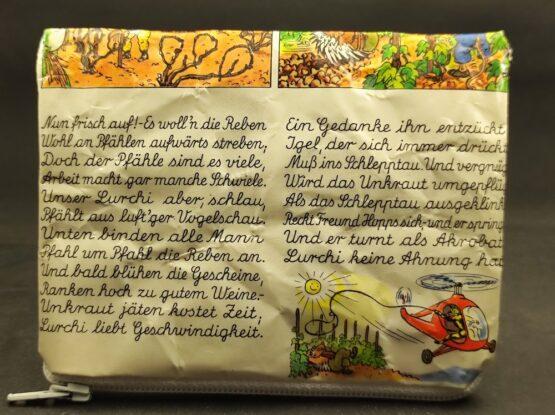 Nun frisch auf!-Es woll'n die Reben
Wohl an Pfählen aufwärts streben,
Doch der Pfähle sind es viele,
Arbeit macht gar manche Schwiele.
Unser Lurchi aber, schlau,
Pfählt aus luft'ger Vogelschau.
Unten binden alle Mann
Pfahl um Pfahl die Reben an.
Und bald blühen die Gescheine,
Ranken hoch zu gutem Weine.-
Unkraut jäten kostet Zeit;
Lurchi liebt Geschwindigkeit.
Ein Gedanke ihn entzückt
Igel, der sich immer drückt
Muß ins Schlepptau. Und vergnüg
Wird das Unkraut umgepflü
Als das Schlepptau ausgeklink
Recht Freund Hopps sich- und er spring
Und er turnt als Akrobat
Lurchi keine Ahnung hat